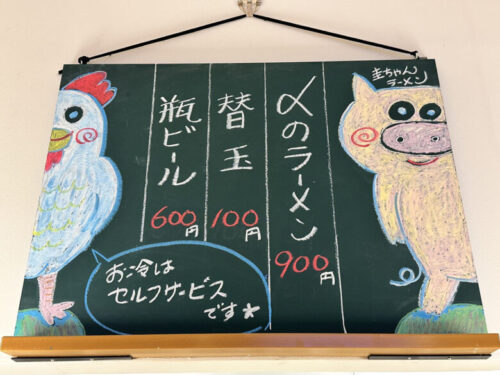 圭ちゃん
ラーメン
〆のラーメン
900円
替玉
100円
瓶ビール
600円
お冷は
セルフサービス
です★